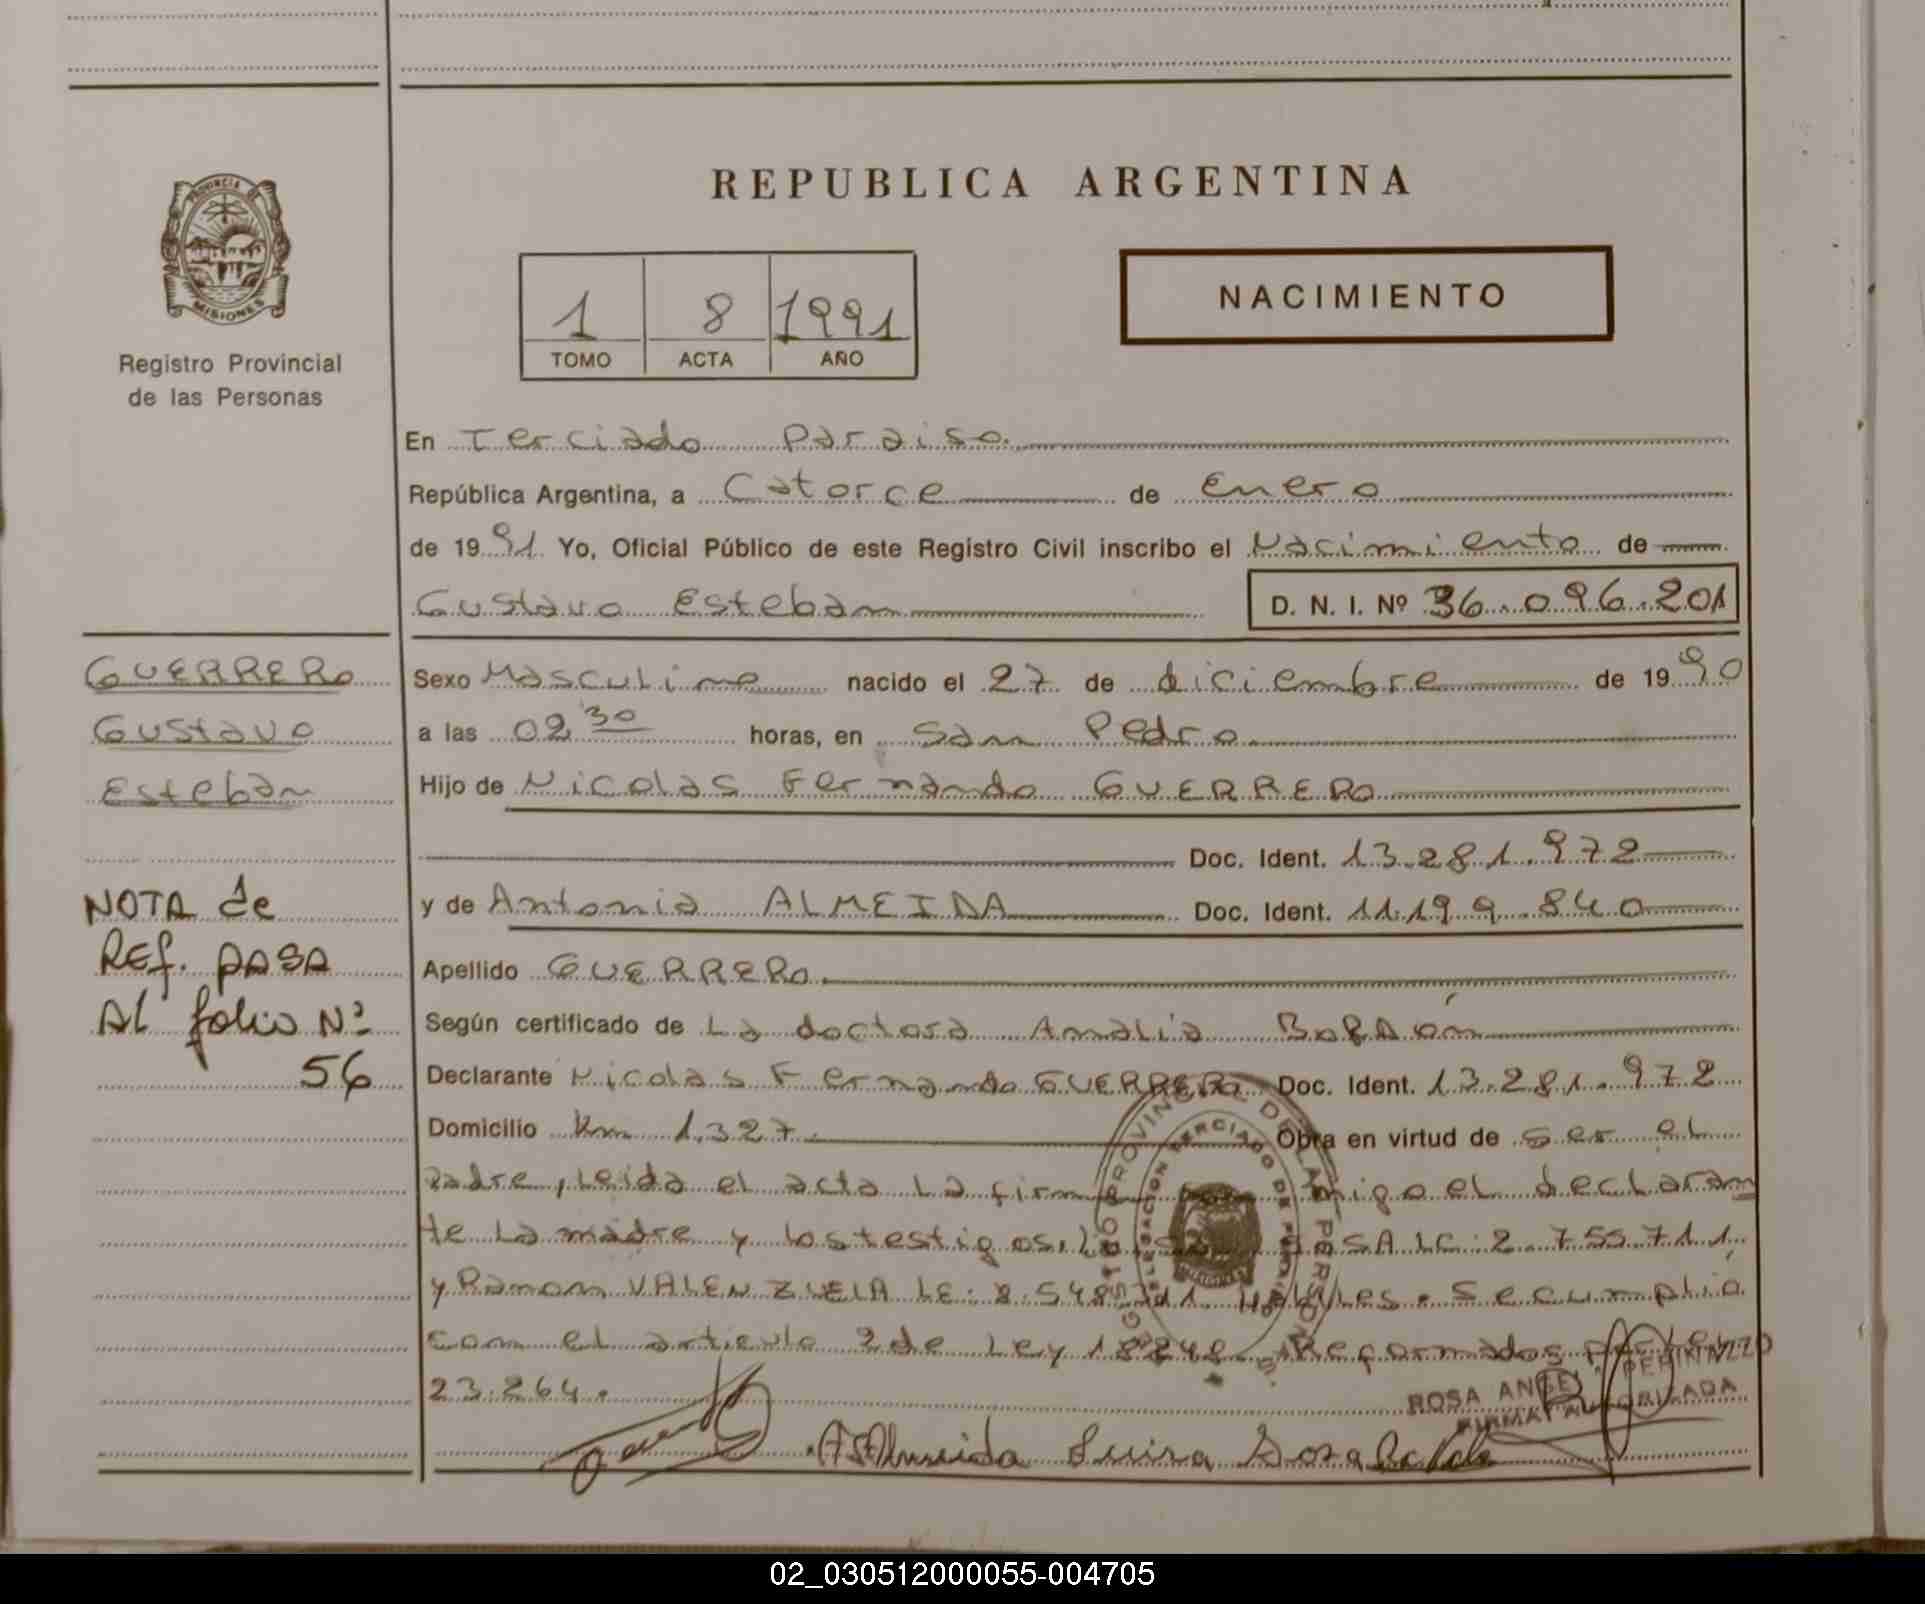 REPUBLICA ARGENTINA
PROVINCIA DE
MISIONES
Registro Provincial
de las Personas
1 8 1991
TOMO ACTA AÑO
NACIMIENTO
En Terciado Paraiso.
República Argentina, a Catorce de Enero
de 1991. Yo, Oficial Público de este Registro Civil inscribo el Nacimiento de
Gustavo Esteban D. N. I. Nº 36.096.201
GUERRERO
Gustavo
Esteban
NOTA de
REf. PASA
Al folio Nº
56
Sexo Masculino nacido el 27 de diciembre de 1990
a las 02 30 horas, en San Pedro
Hijo de Nicolas Fernando GUERRERO
Doc. Ident. 13.281.972
y de Antonia ALMEIDA Doc. Ident. 11.199.840
Apellido GUERRERO
Según certificado de La doctora Amalia
Declarante Nicolas Fernando GUERRERO Doc. Ident. 13.281.972
Domicilio Km 1.327. Obra en virtud de ser el
padre, Leida el acta La firma migo el declaran
te La madre y los testigos. SOSA LC: 2.755.711
y Ramon VALENZUELA LE: 8.548. Habiles. Se cumplió
con el articulo 2 de Ley 18248. Reformados por Ley
23.264.
ROSA
FIRMA AUTORIZADA
Almeida Luisa Sosa
02_030512000055-004705